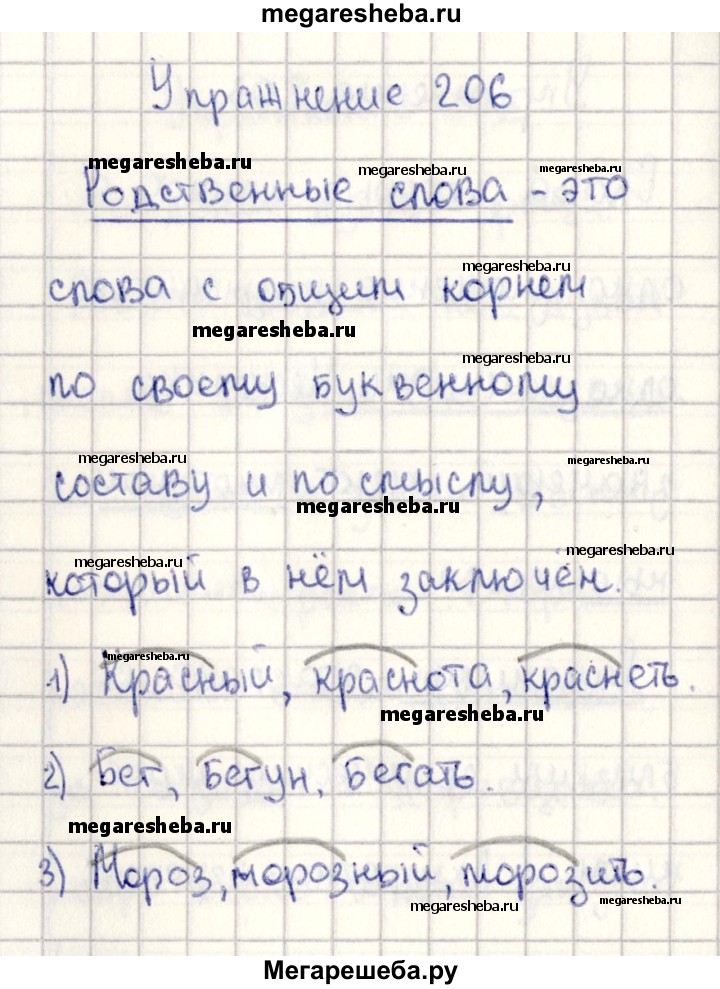 megaresheba.ru
Упражнение 206
megaresheba.ru
megaresheba.ru
megaresheba.ru
Родственные слова - это
megaresheba.ru
слова с общим корнем
megaresheba.ru
megaresheba.ru
по своему буквенному
megaresheba.ru
megaresheba.ru
составу и по смыслу,
megaresheba.ru
megaresheba.ru
megaresheba.ru
который в нём заключён.
megaresheba.ru
1) Красный, краснота, краснеть.
megaresheba.ru
2) Бег, бегун, бегать.
megaresheba.ru
3) Мороз, морозный, морозить.
megaresheba.ru
megaresheba.ru
Мегарешеба.ру